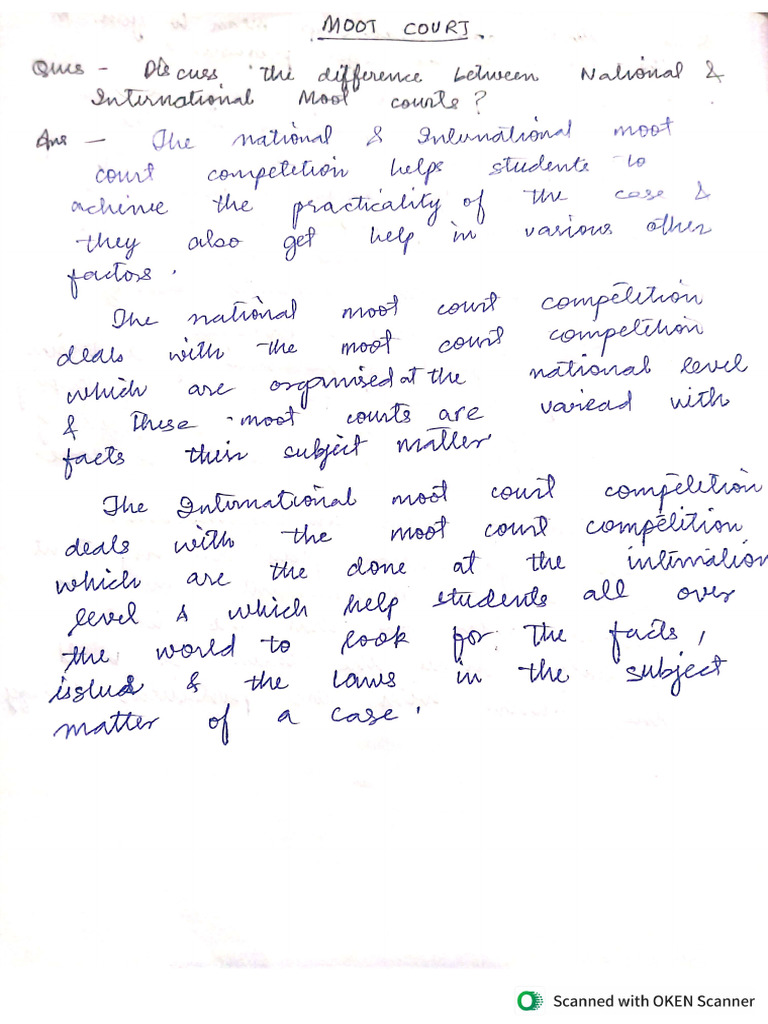 MOOT COURT.
Ques - Discuss the difference between National &
International Moot courts?
Ans - The national & International moot
court competetion helps students to
achieve the practicality of the case &
they also get help in various other
factors.
The national moot court competetion
deals with the moot court competetion
which are organised at the national level
& these moot courts are varead with
facts their subject matter
The International moot court competetion
deals with the moot court competition
which are the done at the intrnation
level & which help students all over
the world to look for the facts,
issues & the laws in the subject
matter of a case.
Scanned with OKEN Scanner